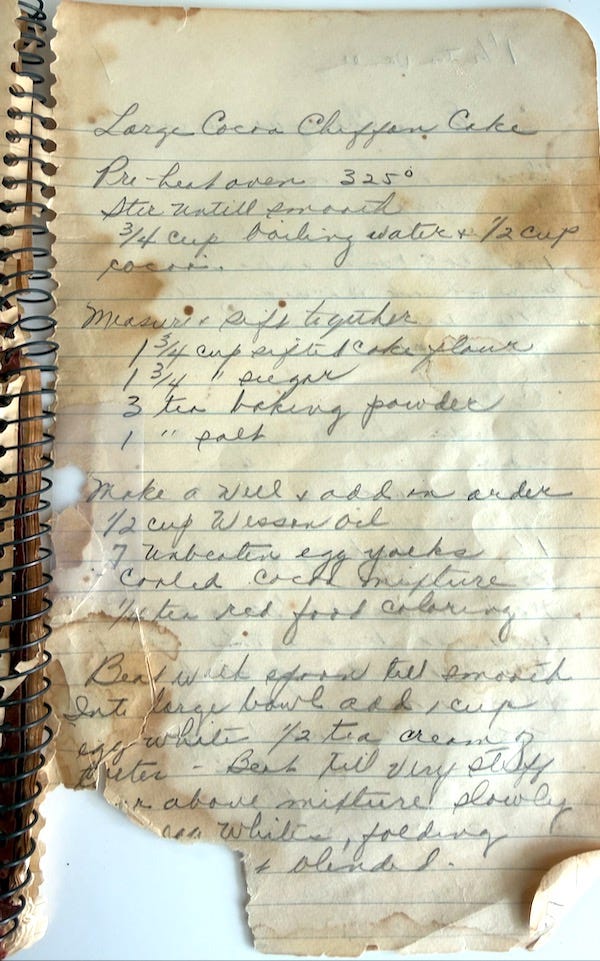 Large Cocoa Chiffon Cake
Pre-heat oven 325°
Stir untill smooth
3/4 cup boiling water + 1/2 cup
cocoa.
Measure + sift together
1 3/4 cup sifted cake flour
1 3/4 " sugar
3 tea baking powder
1 " salt
Make a well + add in order
1/2 cup Wesson oil
7 unbeaten egg yolks
Cooled cocoa mixture
1/4 tea red food coloring
Beat with spoon till smooth
Into large bowl add 1 cup
egg white 1/2 tea cream of
- Beat till very stiff
above mixture slowly
egg whites, folding
blended.